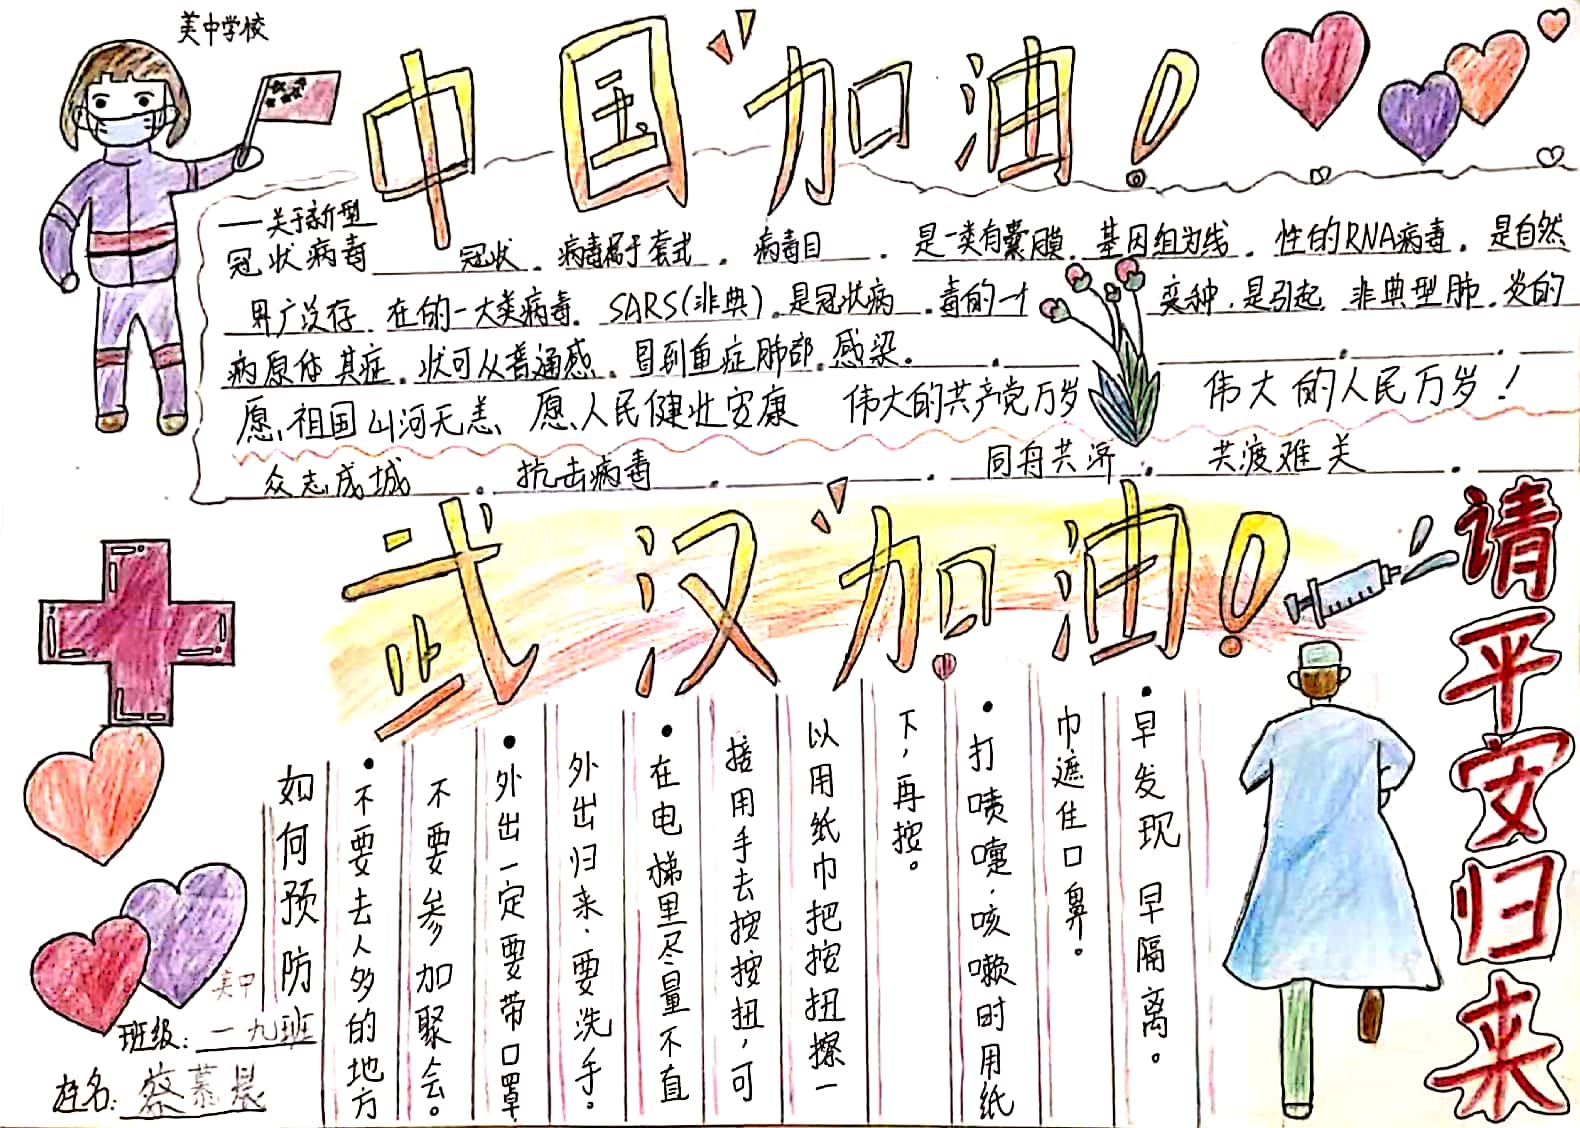 美中学校
中国加油!
——关于新型
冠状病毒 冠状.病毒属于套式.病毒目.是一类有囊膜.基因组为线.性的RNA病毒.是自然
界广泛存在的一大类病毒.SARS(非典).是冠状病.毒的一个变种.是引起非典型肺.炎的
病原体其症.状可从普通感.冒到重症肺部感染.
愿祖国山河无恙 愿人民健壮安康 伟大的共产党万岁 伟大的人民万岁!
众志成城.抗击病毒.同舟共济.共渡难关.
武汉加油!
请平安归来
如何预防
•不要去人多的地方
不要参加聚会。
•外出一定要带口罩
外出归来.要洗手。
•在电梯里尽量不直
接用手去按按扭,可
以用纸巾把按扭擦一
下,再按。
•打喷嚏.咳嗽时用纸
巾遮住口鼻。
•早发现 早隔离。
美中
班级:一九班
姓名:蔡慕晨